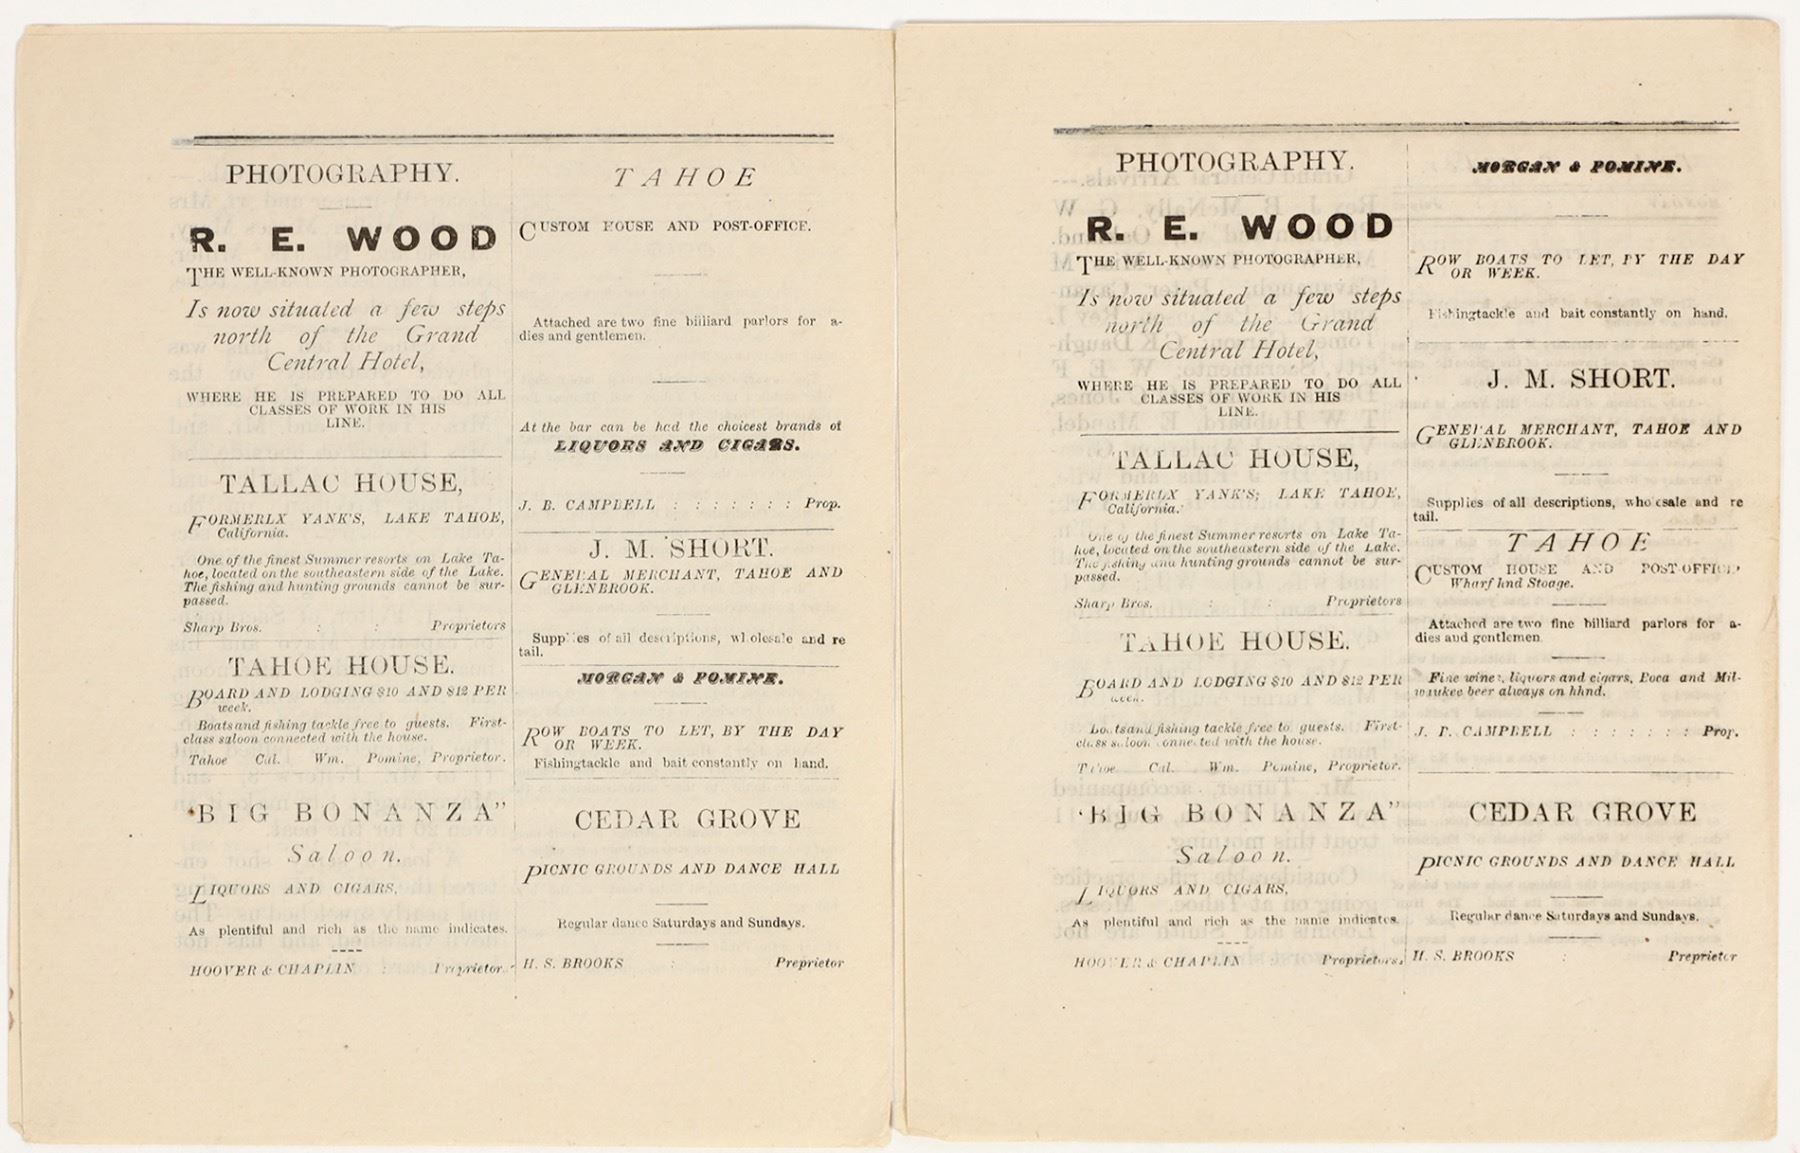 PHOTOGRAPHY.
R. E. WOOD
THE WELL-KNOWN PHOTOGRAPHER,
Is now situated a few steps
north of the Grand
Central Hotel,
WHERE HE IS PREPARED TO DO ALL
CLASSES OF WORK IN HIS
LINE.
TALLAC HOUSE,
FORMERLX YANK'S, LAKE TAHOE,
California.
One of the finest Summer resorts on Lake Ta-
hoe, located on the southeastern side of the Lake.
The fishing and hunting grounds cannot be sur-
passed.
Sharp Bros. : : Proprietors
TAHOE HOUSE.
BOARD AND LODGING $10 AND $12 PER
week.
Boats and fishing tackle free to guests. First-
class saloon connected with the house.
Tahoe Cal. Wm. Pomine, Proprietor.
"BIG BONANZA"
Saloon.
LIQUORS AND CIGARS,
As plentiful and rich as the name indicates.
HOOVER & CHAPLIN : Proprietor
TAHOE
CUSTOM HOUSE AND POST-OFFICE.
Attached are two fine billiard parlors for a-
dies and gentlemen.
At the bar can be had the choicest brands of
LIQUORS AND CIGARS.
J. B. CAMPBELL : : : : : : : Prop.
J. M. SHORT.
GENERAL MERCHANT, TAHOE AND
GLENBROOK.
Supplies of all descriptions, wholesale and re
tail.
MORGAN & POMINE.
ROW BOATS TO LET, BY THE DAY
OR WEEK.
Fishingtackle and bait constantly on hand.
CEDAR GROVE
PICNIC GROUNDS AND DANCE HALL
Regular dance Saturdays and Sundays.
H. S. BROOKS : Preprietor
PHOTOGRAPHY.
R. E. WOOD
THE WELL-KNOWN PHOTOGRAPHER,
Is now situated a few steps
north of the Grand
Central Hotel,
WHERE HE IS PREPARED TO DO ALL
CLASSES OF WORK IN HIS
LINE.
TALLAC HOUSE,
FORMERLX YANK'S; LAKE TAHOE,
California.
One of the finest Summer resorts on Lake Ta-
hoe, located on the southeastern side of the Lake.
The fishing and hunting grounds cannot be sur-
passed.
Sharp Bros. : : Proprietors
TAHOE HOUSE.
BOARD AND LODGING $10 AND $12 PER
week.
Boats and fishing tackle free to guests. First-
class saloon connected with the house.
Tahoe Cal. Wm. Pomine, Proprietor.
"BIG BONANZA"
Saloon.
LIQUORS AND CIGARS,
As plentiful and rich as the name indicates.
HOOVER & CHAPLIN Proprietors.
MORGAN & POMINE.
ROW BOATS TO LET, BY THE DAY
OR WEEK.
Fishingtackle and bait constantly on hand.
J. M. SHORT.
GENERAL MERCHANT, TAHOE AND
GLENBROOK.
Supplies of all descriptions, wholesale and re
tail.
TAHOE
CUSTOM HOUSE AND POST-OFFICE
Wharf hnd Stoage.
Attached are two fine billiard parlors for a-
dies and gentlemen
Fine wines, liquors and cigars, Boca and Mil-
waukee beer always on hhnd.
J. B. CAMPBELL : : : : : : : Prop.
CEDAR GROVE
PICNIC GROUNDS AND DANCE HALL
Regular dance Saturdays and Sundays.
H. S. BROOKS : Preprietor